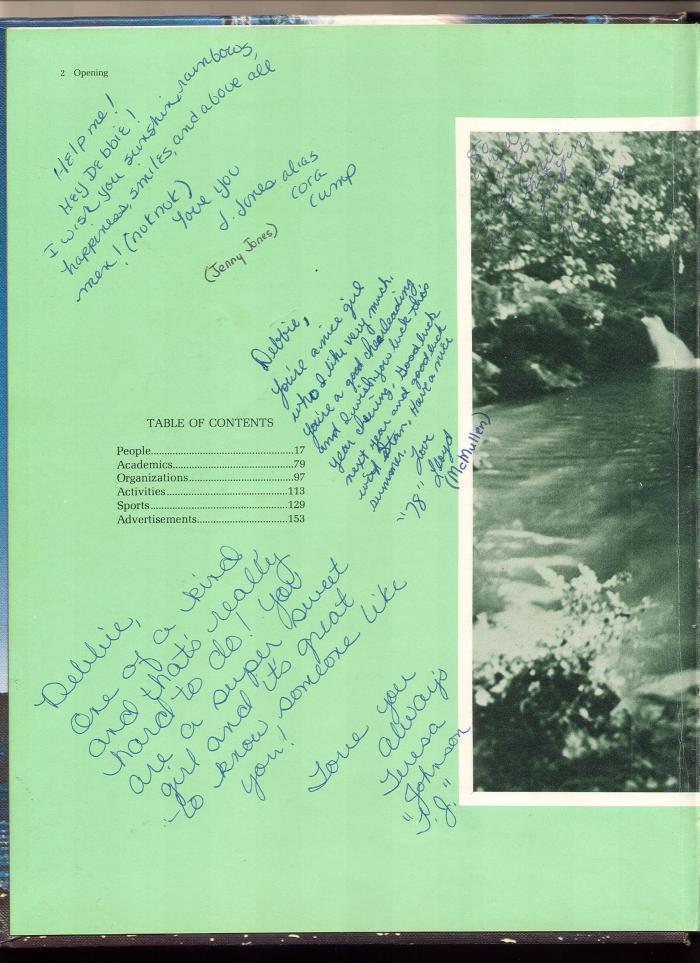 2 Opening
Help me!
Hey Debbie!
I wish you sunshine, rainbows,
happiness, smiles, and above all
men! (nuknuk)
Love you
J. Jones alias
Cora
Cump
(Jenny Jones)
Debbie,
You're a nice girl
who I like very much.
You're a good cheerleading
and I wish you luck this
year cheering. Good luck
next year and good luck
with Stan. Have a nice
summer.
Love
"78" Lloyd
(McMullen)
TABLE OF CONTENTS
People 17
Academics 79
Organizations 97
Activities 113
Sports 129
Advertisements 153
Debbie,
One of a kind
and that's really
hard to do! You
are a super sweet
girl and it's great
to know someone like
you!
Love you
always
Teresa
Johnson
"T.J."